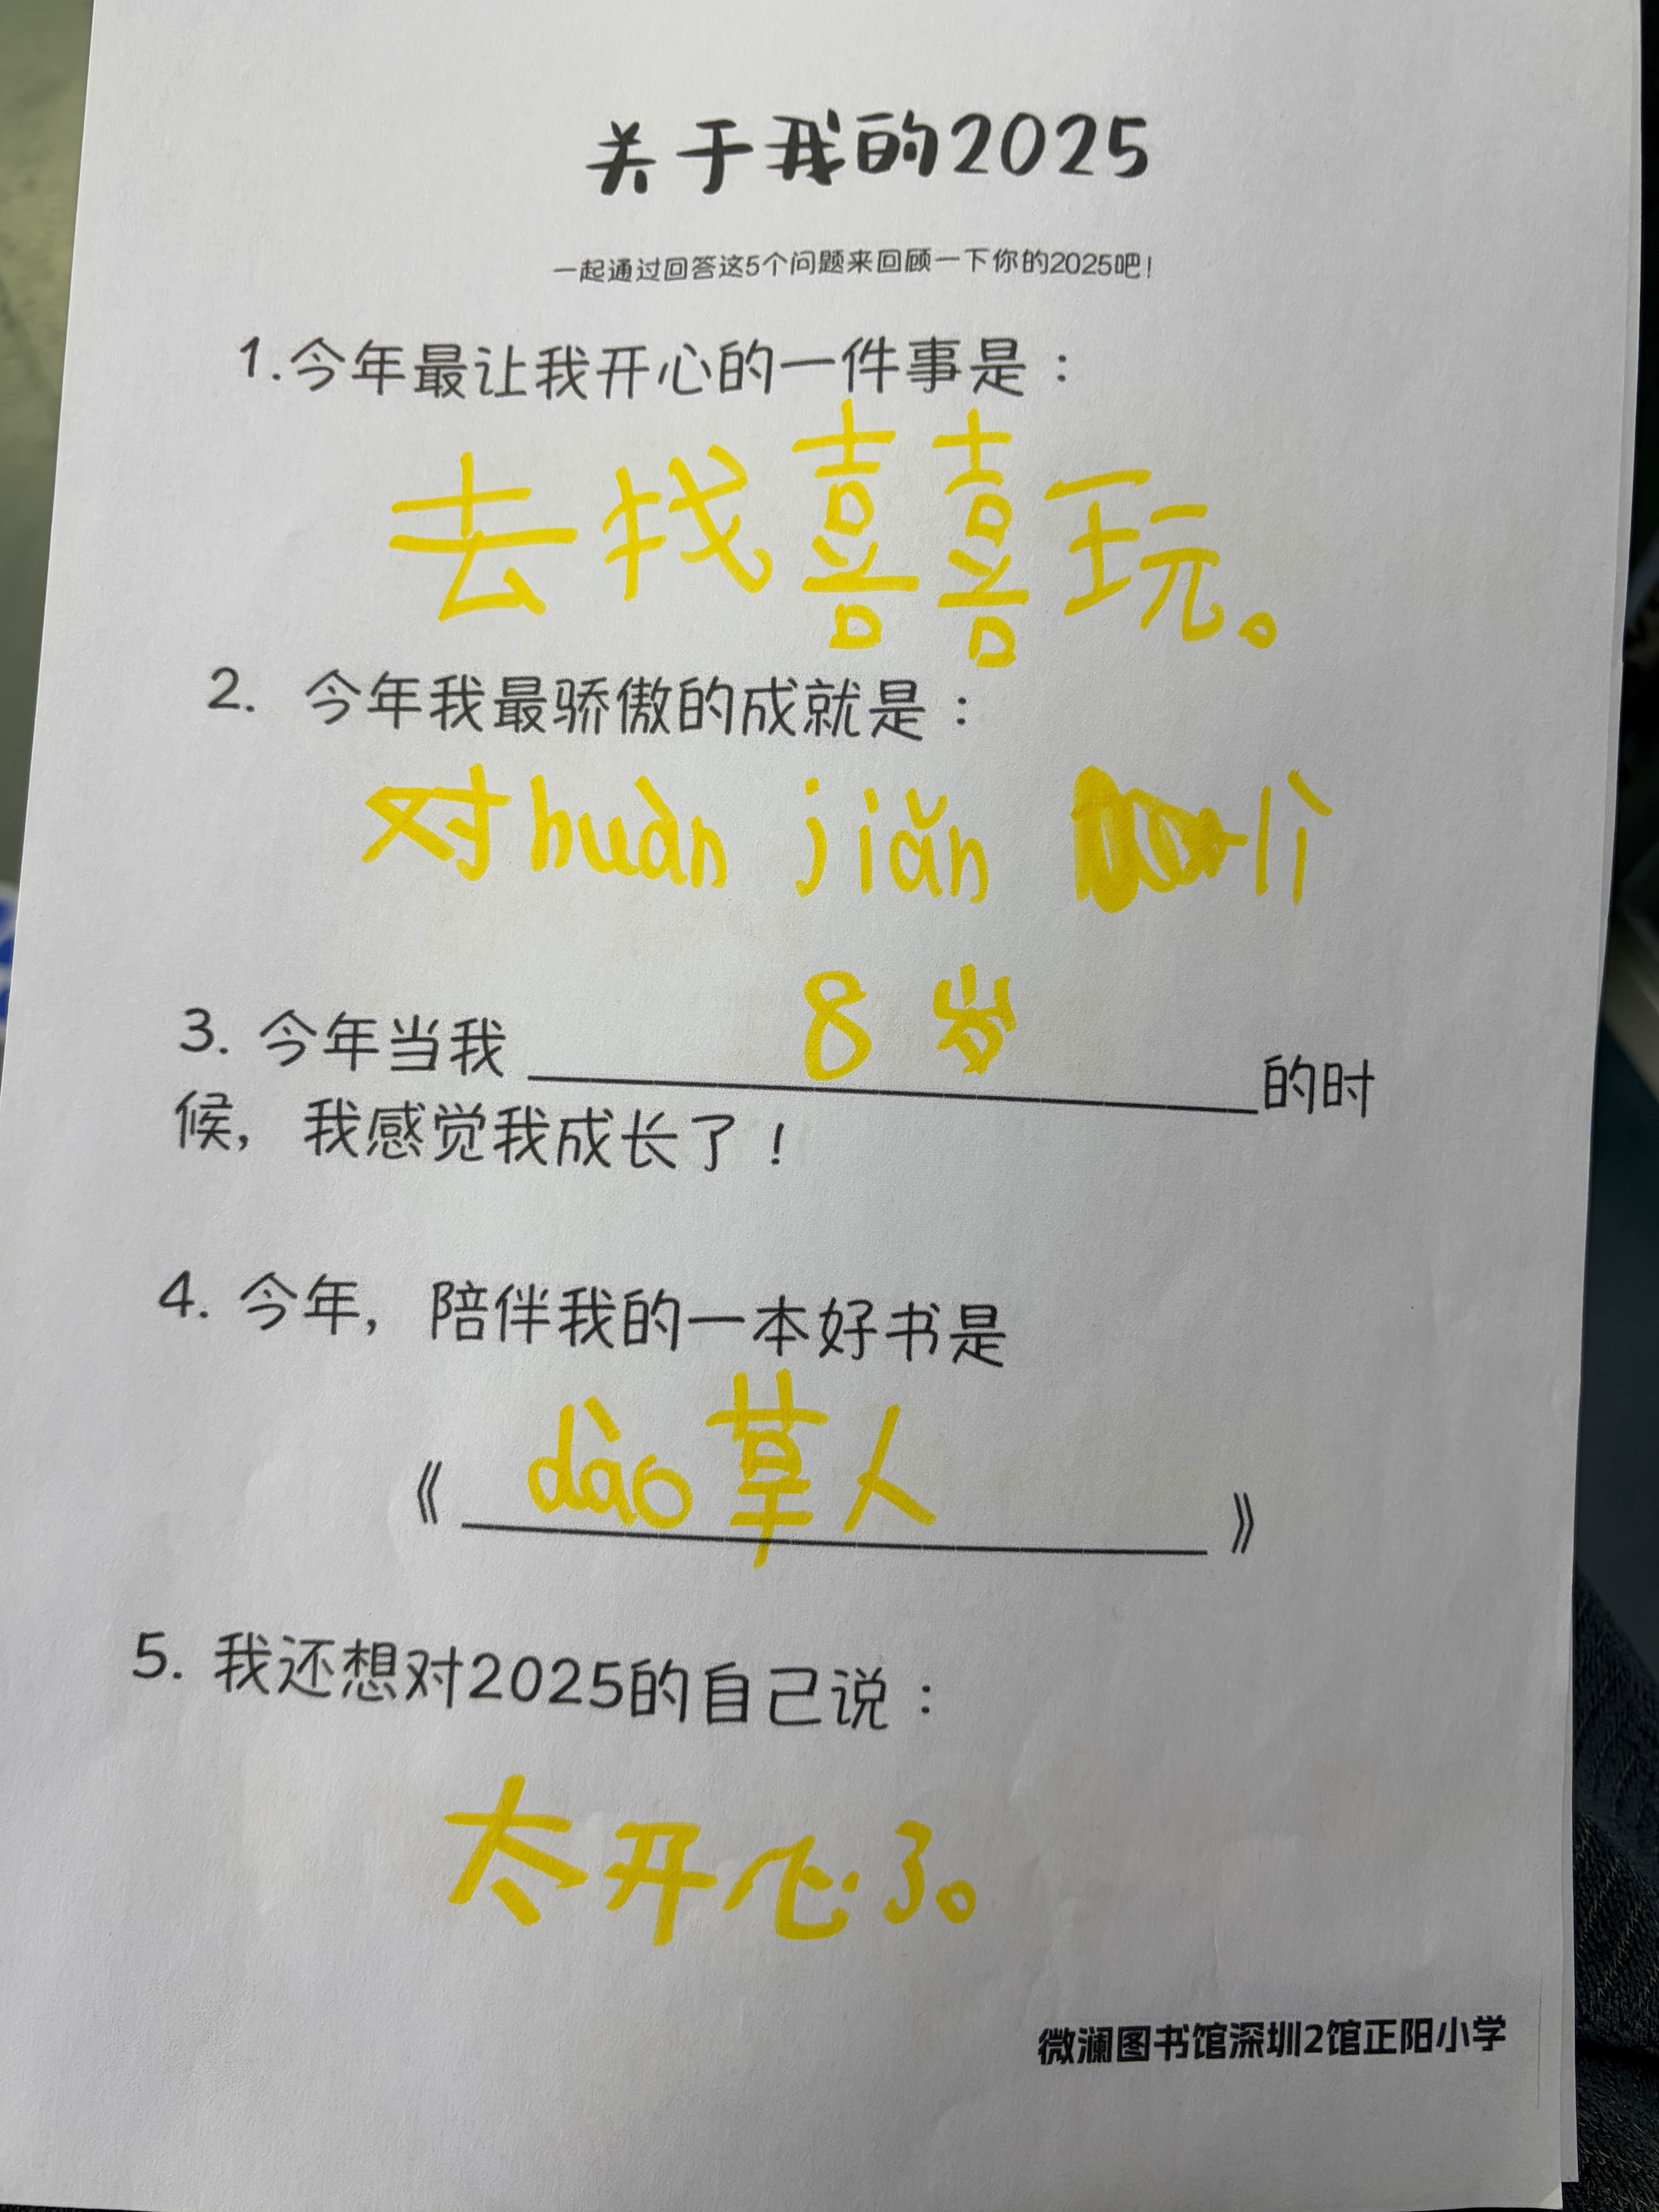 关于我的2025
一起通过回答这5个问题来回顾一下你的2025吧!
1.今年最让我开心的一件事是：
去找喜喜玩。
2. 今年我最骄傲的成就是：
对huàn jiǎn lì
3. 今年当我 8岁 的时
候，我感觉我成长了！
4. 今年，陪伴我的一本好书是
《dào草人》
5. 我还想对2025的自己说：
太开心了。
微澜图书馆深圳2馆正阳小学